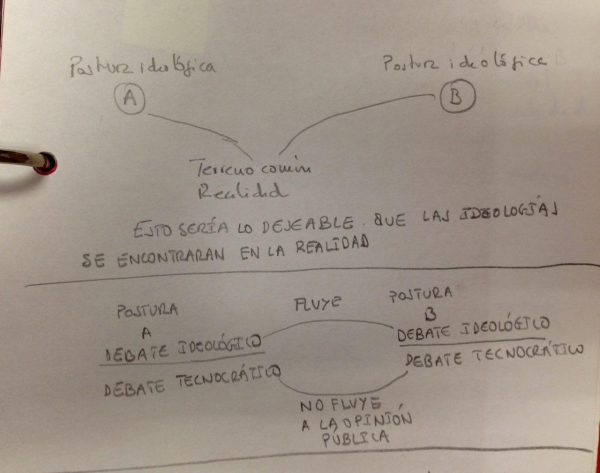 Postura ideológica
Postura ideológica
A
B
Terreno común
Realidad
ESTO SERÍA LO DESEABLE. QUE LAS IDEOLOGÍAS
SE ENCONTRARAN EN LA REALIDAD
POSTURA
A
DEBATE IDEOLÓGICO
DEBATE TECNOCRÁTICO
FLUYE
POSTURA
B
DEBATE IDEOLÓGICO
DEBATE TECNOCRÁTICO
NO FLUYE
A LA OPINIÓN
PÚBLICA